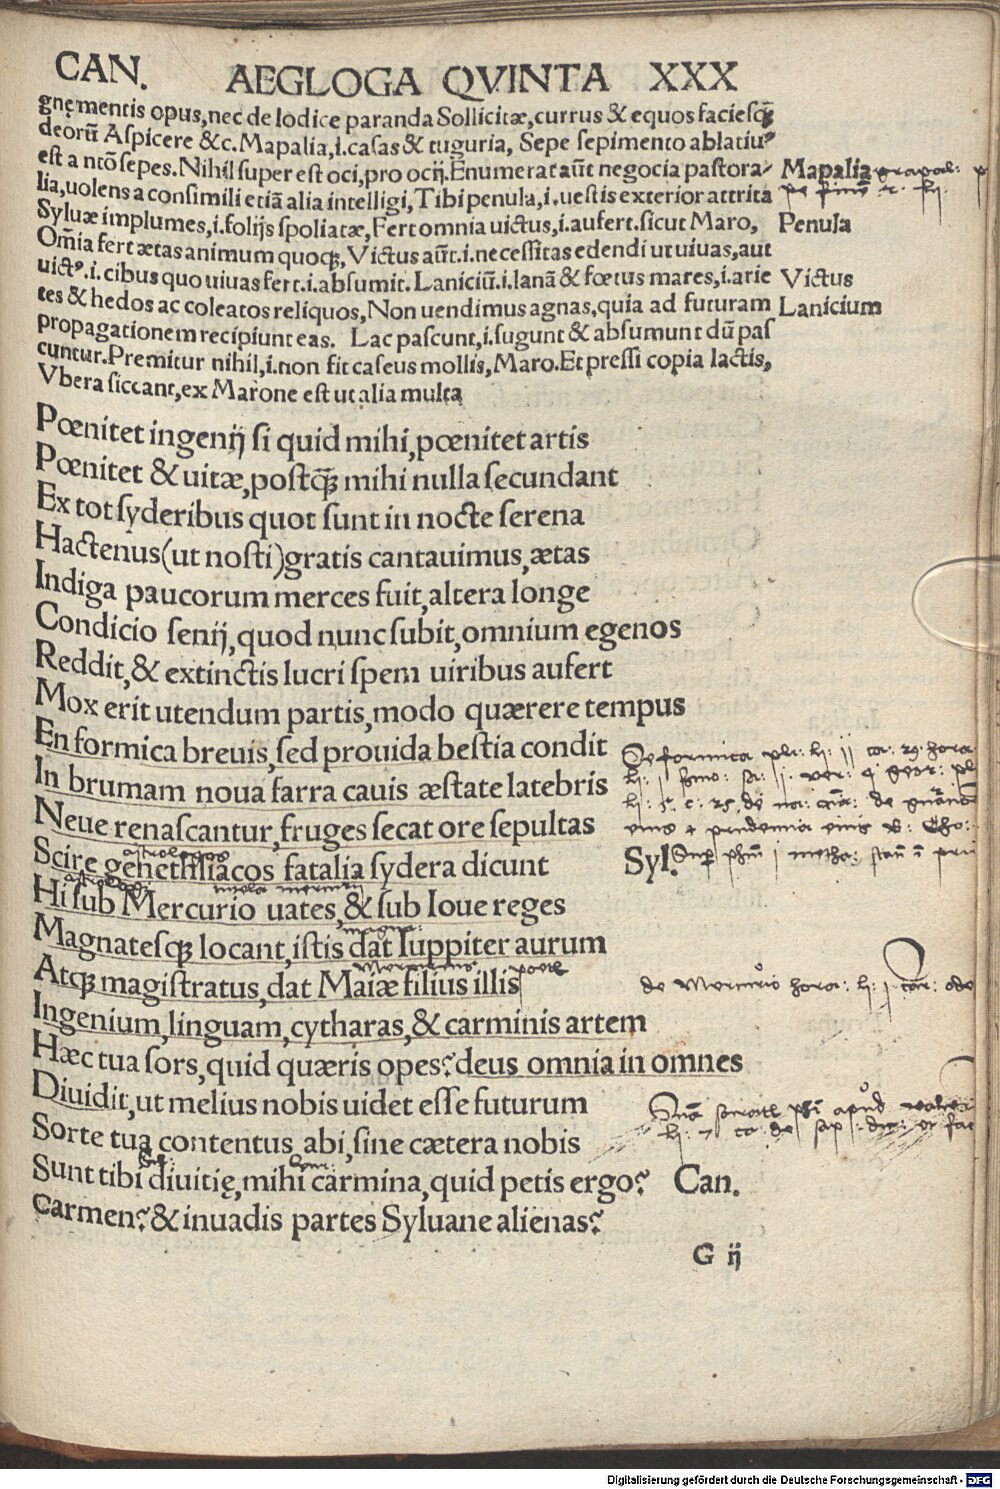 CAN. AEGLOGA QVINTA XXX
gnę mentis opus, nec de lodice paranda Sollicitæ, currus & equos faciesq̃
deorũ Aſpicere &c. Mapalia, i. caſas & tuguria, Sepe ſepimento ablatiuꝰ
eſt a ntõ ſepes. Nihil ſuper eſt oci, pro ocij. Enumerat aũt negocia paſtora-
lia, uolens a conſimili etiã alia intelligi, Tibi penula, i. ueſtis exterior attrita
Mapalia
Syluæ implumes, i. folijs ſpoliatæ, Fert omnia uictus, i. aufert. ſicut Maro,
Penula
Om̃ia fert ætas animum quoqꝫ, Victus aũt. i. neceſſitas edendi ut uiuas, aut
uictꝰ. i. cibus quo uiuas fert. i. abſumit. Laniciũ. i. lanã & fœtus mares, i. arie
Victus
tes & hedos ac coleatos reliquos, Non uendimus agnas, quia ad futuram
Lanicium
propagationem recipiunt eas. Lac paſcunt, i. ſugunt & abſumunt dũ paſ
cuntur. Premitur nihil, i. non fit caſeus mollis, Maro. Et preſſi copia lactis,
Vbera ſiccant, ex Marone eſt ut alia multa
Pœnitet ingenij ſi quid mihi, pœnitet artis
Pœnitet & uitæ, poſtq̃ꝫ mihi nulla ſecundant
Ex tot ſyderibus quot ſunt in nocte ſerena
Hactenus (ut noſti) gratis cantauimus, ætas
Indiga paucorum merces fuit, altera longe
Condicio ſenij, quod nunc ſubit, omnium egenos
Reddit, & extinctis lucri ſpem uiribus aufert
Mox erit utendum partis, modo quærere tempus
En formica breuis, ſed prouida beſtia condit
In brumam noua farra cauis æſtate latebris
Neue renaſcantur, fruges ſecat ore ſepultas
astrologos
Scire genethliacos fatalia ſydera dicunt
Syl.
Hi ſub Mercurio uates, & ſub Ioue reges
Magnateſqꝫ locant, iſtis dat Iuppiter aurum
Atqꝫ magiſtratus, dat Maiæ filius illis
de Mercurio hora: li: j car: ode
Ingenium, linguam, cytharas, & carminis artem
Hæc tua ſors, quid quæris opes? deus omnia in omnes
Diuidit, ut melius nobis uidet eſſe futurum
Sorte tua contentus abi, ſine cætera nobis
Sunt tibi diuitię, mihi carmina, quid petis ergo? Can.
Carmen? & inuadis partes Syluane alienas?
G ij
Digitalisierung gefördert durch die Deutsche Forschungsgemeinschaft - DFG